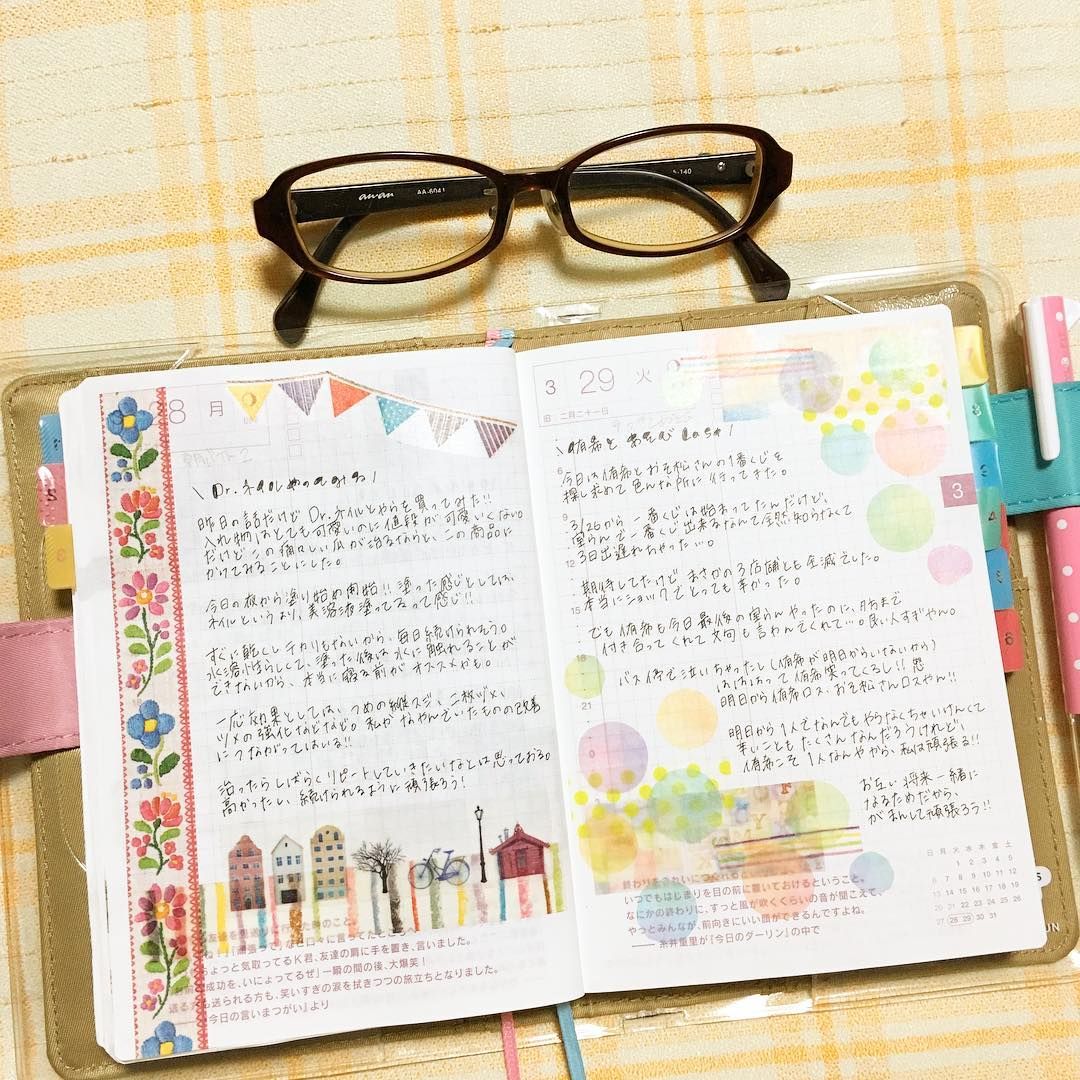 an·an
AA-6041
5-140
8 月
\ Dr.ネイルやってみる /
昨日の話だけど Dr.ネイルとやらを買ってみた!!
入れ物はとても可愛いのに値段が可愛いくない。
だけどこの痛々しい爪が治るならと、この商品に
かけてみることにした。
今日の夜から塗り始め開始!! 塗った感じとしては、
ネイルというより、美容液塗ってるって感じ!!
すぐに乾くしテカりもないから、毎日続けられそう。
水溶性らしくて、塗った後は水に触れることが
できないから、本当に寝る前がオススメかも。
一応効果としては、つめの縦スジ、二枚ヅメ、
ツメの強化などなど。私がなやんでいたものの改善
につながってはいる!!
治ったらしばらくリピートしていきたいなとは思っておる。
高かったい、続けられるように頑張ろう!
なと口々に言って
ちょっと気取ってるK君、友達の肩に手を置き、言いました。
成功を、いにょってるぜ」一瞬の間の後、大爆笑!
送られる方も、笑いすぎの涙を拭きつつの旅立ちとなりました。
『今日の言いまつがい』より
3 29 火
旧 二月二十一日
\ 侑希とあそぶ Last /
今日は侑希とおそ松さんの1番くじを
探し求めて色んな所に行ってきた。
3/26から一番くじは始まってたんだけど、
室らんで一番くじ出来るなんて全然知らなくて
3日出遅れちゃった…。
期待してたけど、まさかの3店舗とも全滅でした。
本当にショックでとっても辛かった。
でも侑希も今日最後の室らんやったのに、夕方まで
付き合ってくれて文句も言わんでくれて…。良い人すぎやん。
バス停で泣いちゃったし(侑希が明日からいないから)
ははは って侑希笑ってくるし!! 怒
明日から侑希ロス、おそ松さんロスやん!!
明日から1人でなんでもやらなくちゃいけんくて
辛いこともたくさんなんだろうけれど、
侑希こそ1人なんやから、私は頑張る!!
お互い将来一緒に
なるためだから、
がまんして頑張ろう!!
終わりをきれいに
いつでもはじまりを目の前に置いておけるということ。
なにかの終わりに、すっと風が吹くくらいの音が聞こえて、
やっとみんなが、前向きにいい顔ができるんですよね。
——糸井重里が『今日のダーリン』の中で
日 月 火 水 木 金 土
1 2 3 4 5
6 7 8 9 10 11 12
13 14 15 16 17 18 19
20 21 22 23 24 25 26
27 28 29 30 31
6
9
12
15
18
21
3